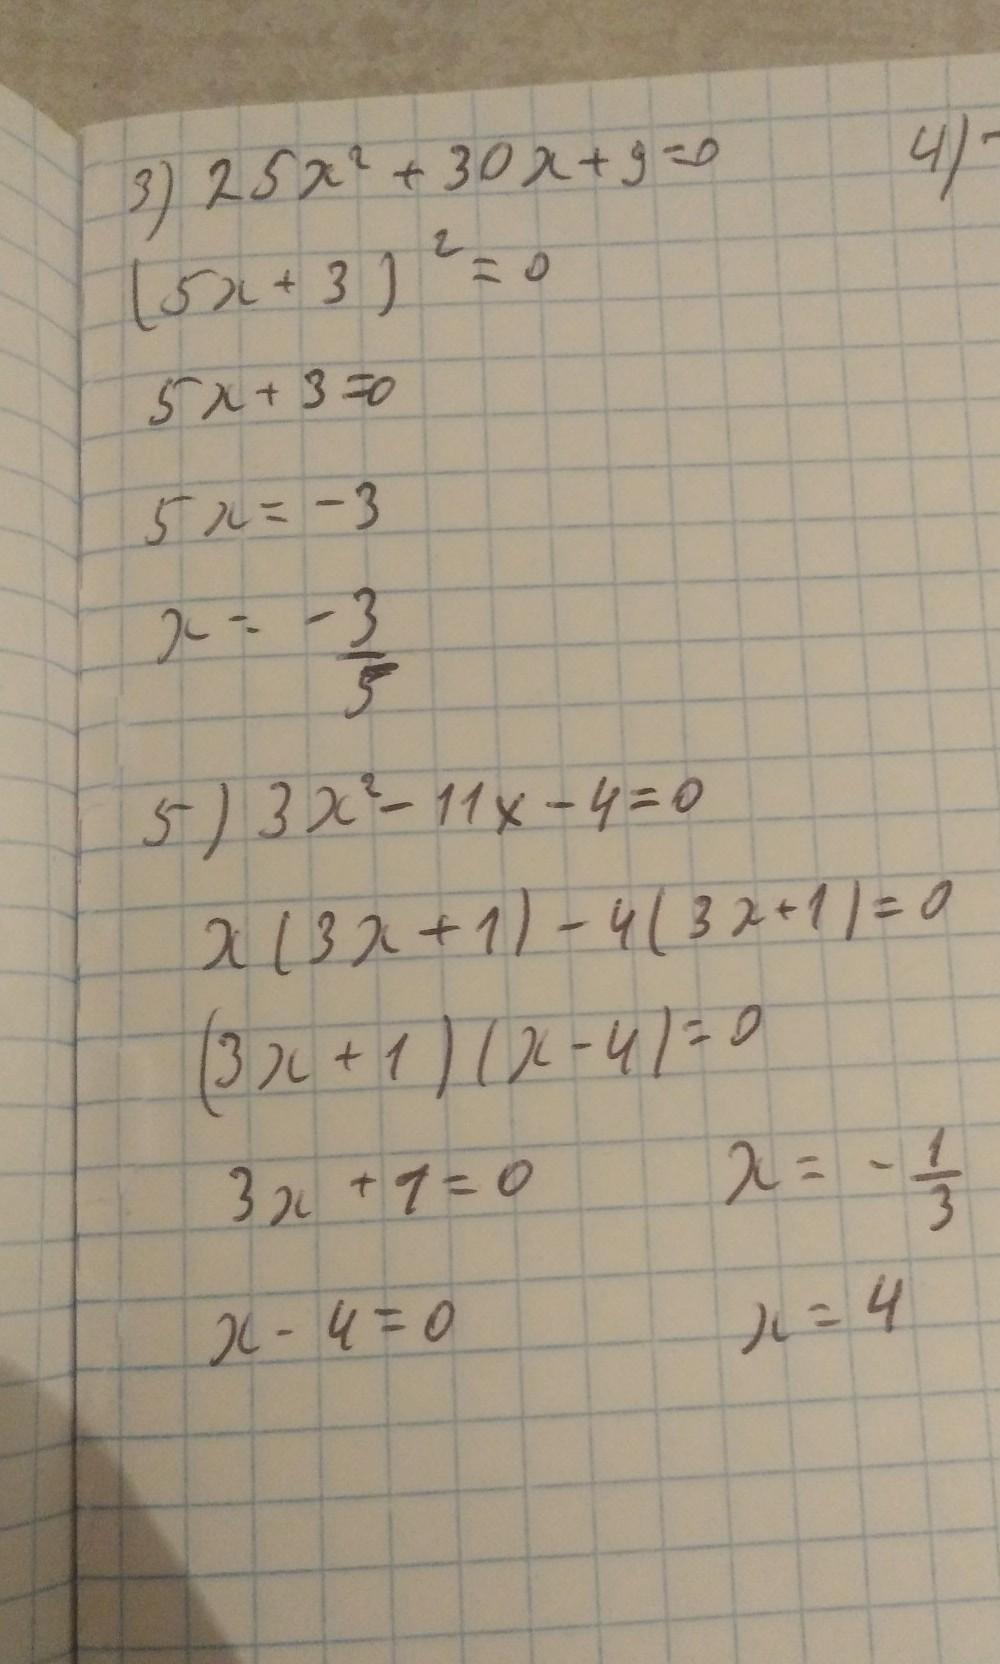 3) 25x² + 30x + 9 = 0
4) -
(5x + 3)² = 0
5x + 3 = 0
5x = -3
x = -3/5
5) 3x² - 11x - 4 = 0
x(3x + 1) - 4(3x + 1) = 0
(3x + 1)(x - 4) = 0
3x + 1 = 0 x = -1/3
x - 4 = 0 x = 4